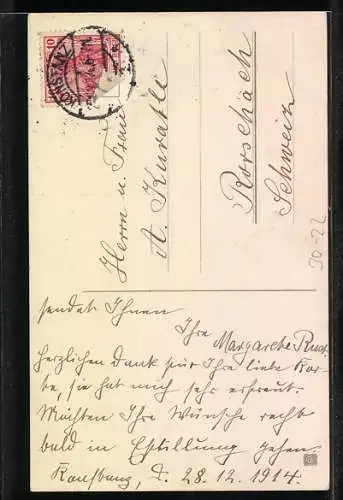 KONSTANZ
10
Herrn u. Frau
A. Kurath
Rorschach
Schweiz
30-22
sendet Ihnen
Ihre Margarethe
Herzlichen Dank für Ihre liebe Kar-
te, sie hat mich sehr erfreut.
Möchten Ihre Wünsche recht
bald in Erfüllung gehen.
Konstanz, d. 28.12.1914.